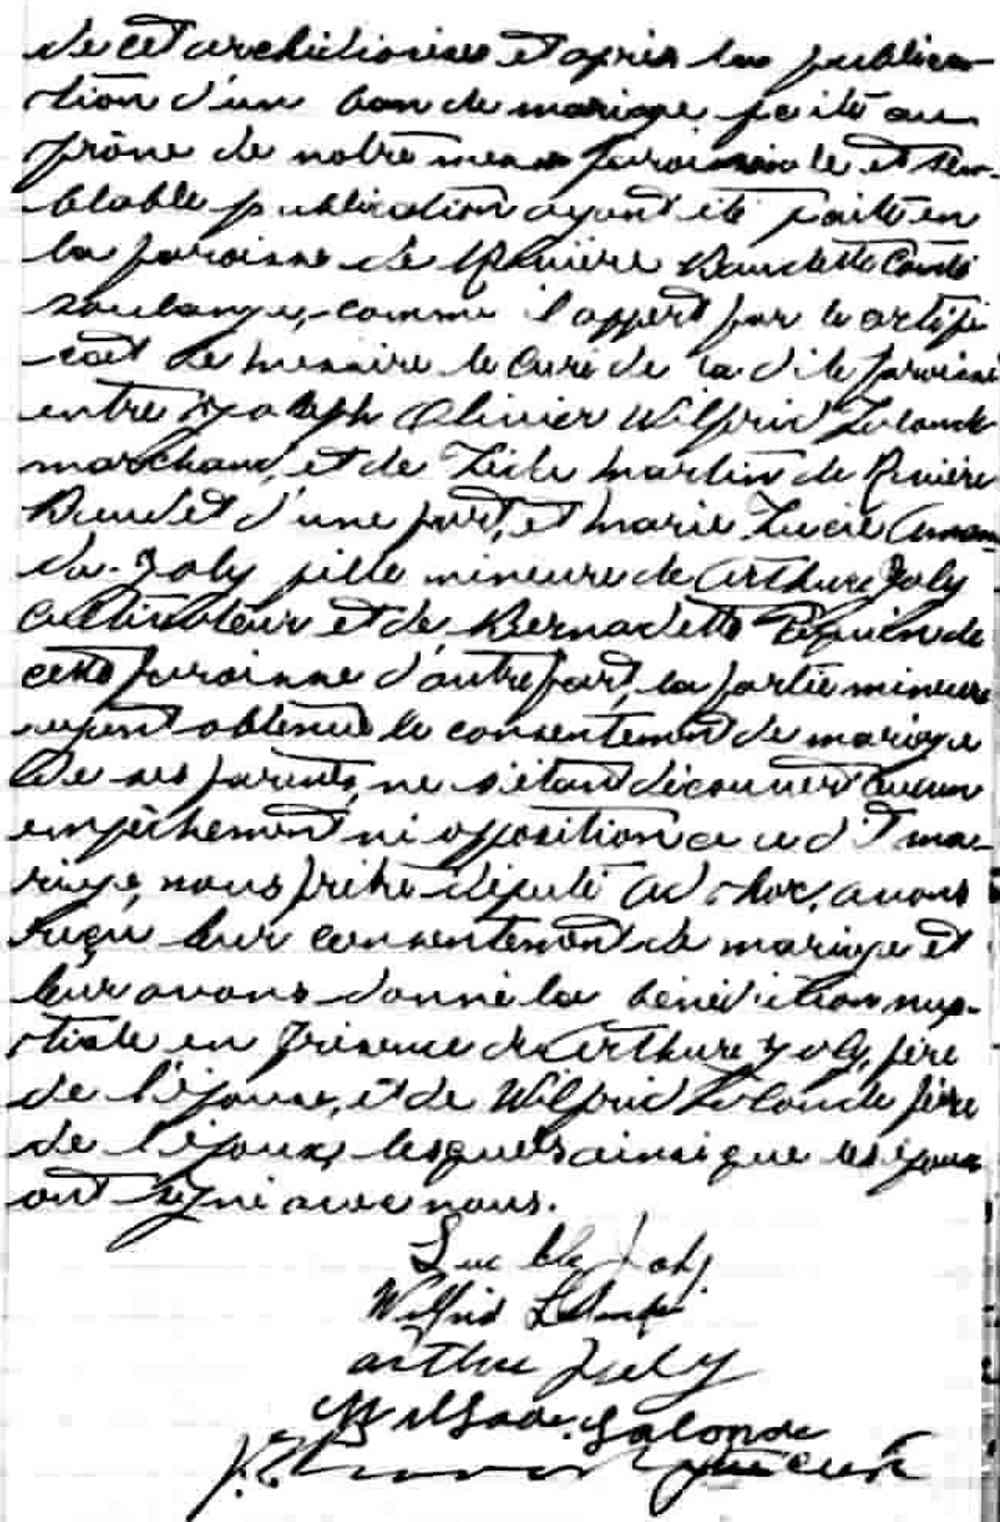 de cet archidiocèse et après la publica-
tion d'un ban de mariage faite au
prône de notre messe paroissiale et sem-
blable publication ayant été faite en
la paroisse de Rivière Beaudette Comté
Soulanges, comme il appert par le certifi
cat de messire le Curé de la dite paroisse
entre Joseph Olivier Wilfrid Lalonde
marchand, et de Zéila Martin de Rivière
Beaudet d'une part, et Marie Lucie Aman
da Joly fille mineure de Arthur Joly
Cultivateur et de Bernadette de
cette paroisse d'autre part, la partie mineure
ayant obtenu le consentement de mariage
de ses parents, ne s'étant découvert aucun
empêchement ni opposition au dit ma-
riage, nous prêtre député ad hoc, avons
reçu leur consentement de mariage et
leur avons donné la bénédiction nup-
tiale en présence de Arthur Joly, père
de l'épouse, et de Wilfrid Lalonde père
de l'époux, lesquels ainsi que les époux
ont signé avec nous.
Joly
Wilfrid Lalonde
Arthur Joly
Lalonde
ptre curé